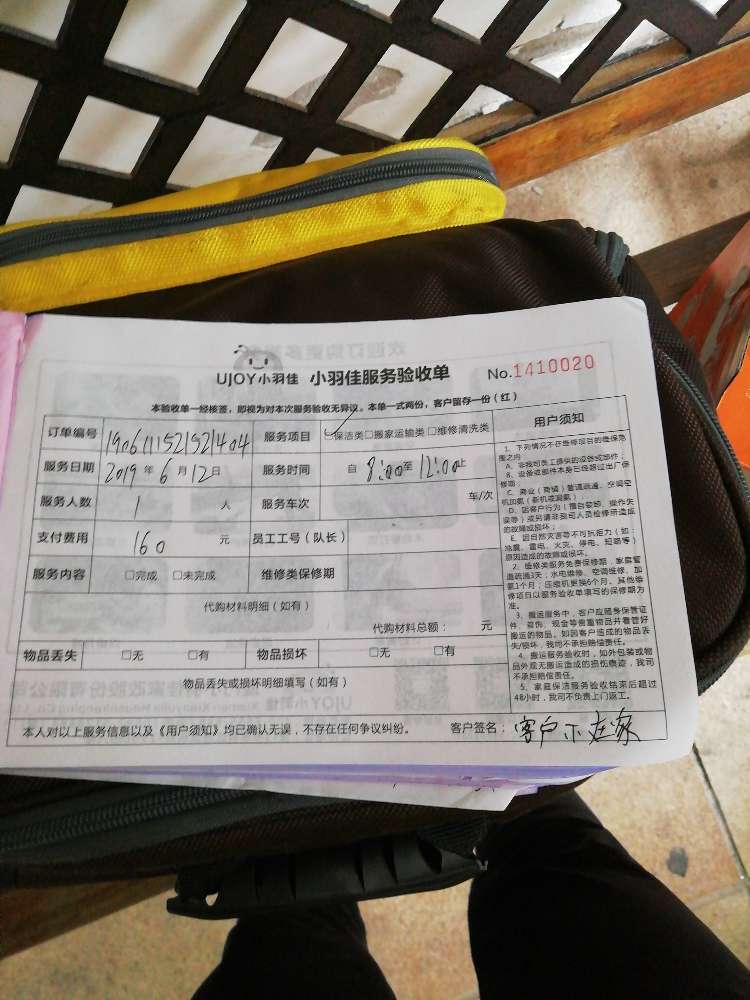 UJOY小羽佳 小羽佳服务验收单 No.1410020
本验收单一经核签，即视为对本次服务验收无异议。本单一式两份，客户留存一份（红）
订单编号 1906111521921404 服务项目 保洁类 □搬家运输类 □维修清洗类
服务日期 2019 年 6 月 12 日 服务时间 自 8:00 至 12:00 止
服务人数 1 人 服务车次 车/次
支付费用 160 元 员工工号（队长）
服务内容 □完成 □未完成 维修类保修期
代购材料明细（如有）
代购材料总额： 元
物品丢失 □无 □有 物品损坏 □无 □有
物品丢失或损坏明细填写（如有）
本人对以上服务信息以及《用户须知》均已确认无误，不存在任何争议纠纷。 客户签名：客户不在家
用户须知
1、下列情况不在维修项目的维保范
围之内
A、非我司员工提供的设备或部件；
B、设备或部件本身已经超过出厂保
修期；
C、商业（商铺）管道疏通、空调空
机加氨（新机或漏氨）
D、因客户行为（擅自装修、操作失
误等）或另请非我司人员检修所造成
的故障或损坏；
E、因自然灾害等不可抗拒力（如：
地震、雷电、火灾、停电、短路等）
原因造成的故障或损坏。
2、维修类服务免费保修期，家庭管
道疏通3天；水电维修、空调维修、加
氨1个月；压缩机更换6个月。其他维
修项目以服务验收单填写的保修期为
准。
3、搬运服务中，客户应随身保管证
件、首饰、现金等贵重物品并看管好
搬运的物品。如因客户造成的物品丢
失/损坏，我司不承担赔偿责任。
4、搬运服务验收时，如外包装或物
品外观无搬运造成的损伤痕迹，我司
不承担赔偿责任。
5、家庭保洁服务验收结束后超过
48小时，我司不负责上门返工。